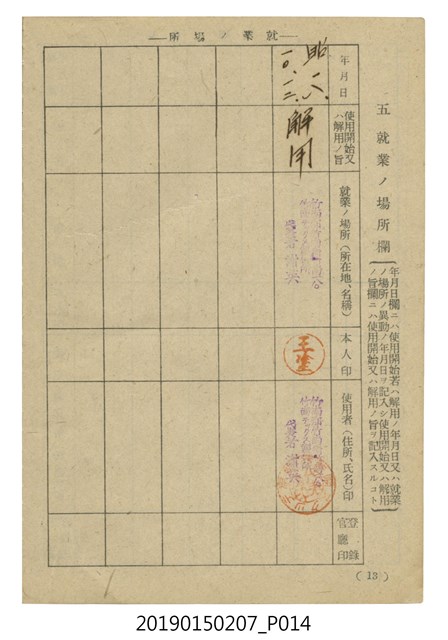 五 就業ノ場所欄
年月日欄ニハ使用開始若ハ解用ノ年月日又ハ就業
ノ場所ノ異動ノ年月日ヲ記入シ使用開始又ハ解用
ノ旨欄ニハ使用開始又ハ解用ノ旨ヲ記入スルコト
就業ノ場所
年月日
使用開始又
ハ解用ノ旨
就業ノ場所(所在地、名稱)
本人印
使用者(住所、氏名)印
登錄
官廳印
昭一八、
一〇、一二、
解用
(13)
20190150207_P014